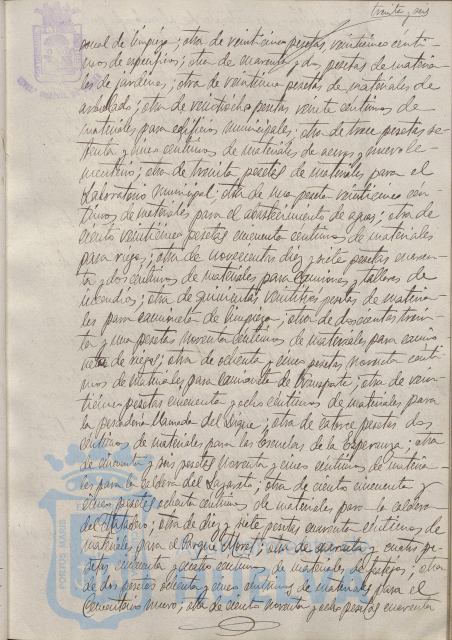 treinta y seis
sonal de limpieza; otra de veinticinco pesetas veinticinco cénti-
mos de específicos; otra de cuarenta y dos pesetas de materia-
les de jardines; otra de veintiuna pesetas de materiales de
arbolado; otra de veintiocho pesetas veinte centimos de
materiales para edificios municipales; otra de trece pesetas se-
tenta y cinco centimos de materiales de aceras y nuevo ce-
menterio; otra de treinta pesetas de materiales para el
Laboratorio Municipal; otra de una peseta veinticinco cen-
timos de materiales para el abastecimiento de aguas; otra de
ciento veinticinco pesetas cincuenta centimos de materiales
para riego; otra de novecientas diez y siete pesetas
ta y dos centimos de materiales para camiones y talleres de
incendios; otra de quinientas veintitres pesetas de materia-
les para camioneta de limpieza; otra de doscientas trein-
ta y una pesetas noventa centimos de materiales para camio-
neta de riego; otra de ochenta y cinco pesetas noventa centi-
mos de materiales para camioneta de transporte; otra de vein-
ticinco pesetas cincuenta y ocho centimos de materiales para
la pescaderia llamada del Dique; otra de catorce pesetas dos
centimos de materiales para las Escuelas de la Esperanza; otra
de cincuenta y seis pesetas noventa y cinco centimos de materia-
les para la caldera del Lazareto; otra de ciento cincuenta y
cinco pesetas ochenta centimos de materiales para la caldera
del Matadero; otra de diez y siete pesetas cuarenta centimos de
materiales para el Parque Moret; otra de cuarenta y cuatro pe-
setas cincuenta y cuatro centimos de materiales de festejos; otra
de dos pesetas ochenta y cinco centimos de materiales para el
Cementerio nuevo; otra de ciento noventa y ocho pesetas cuarenta
PORTUS MARIS
HUELVA